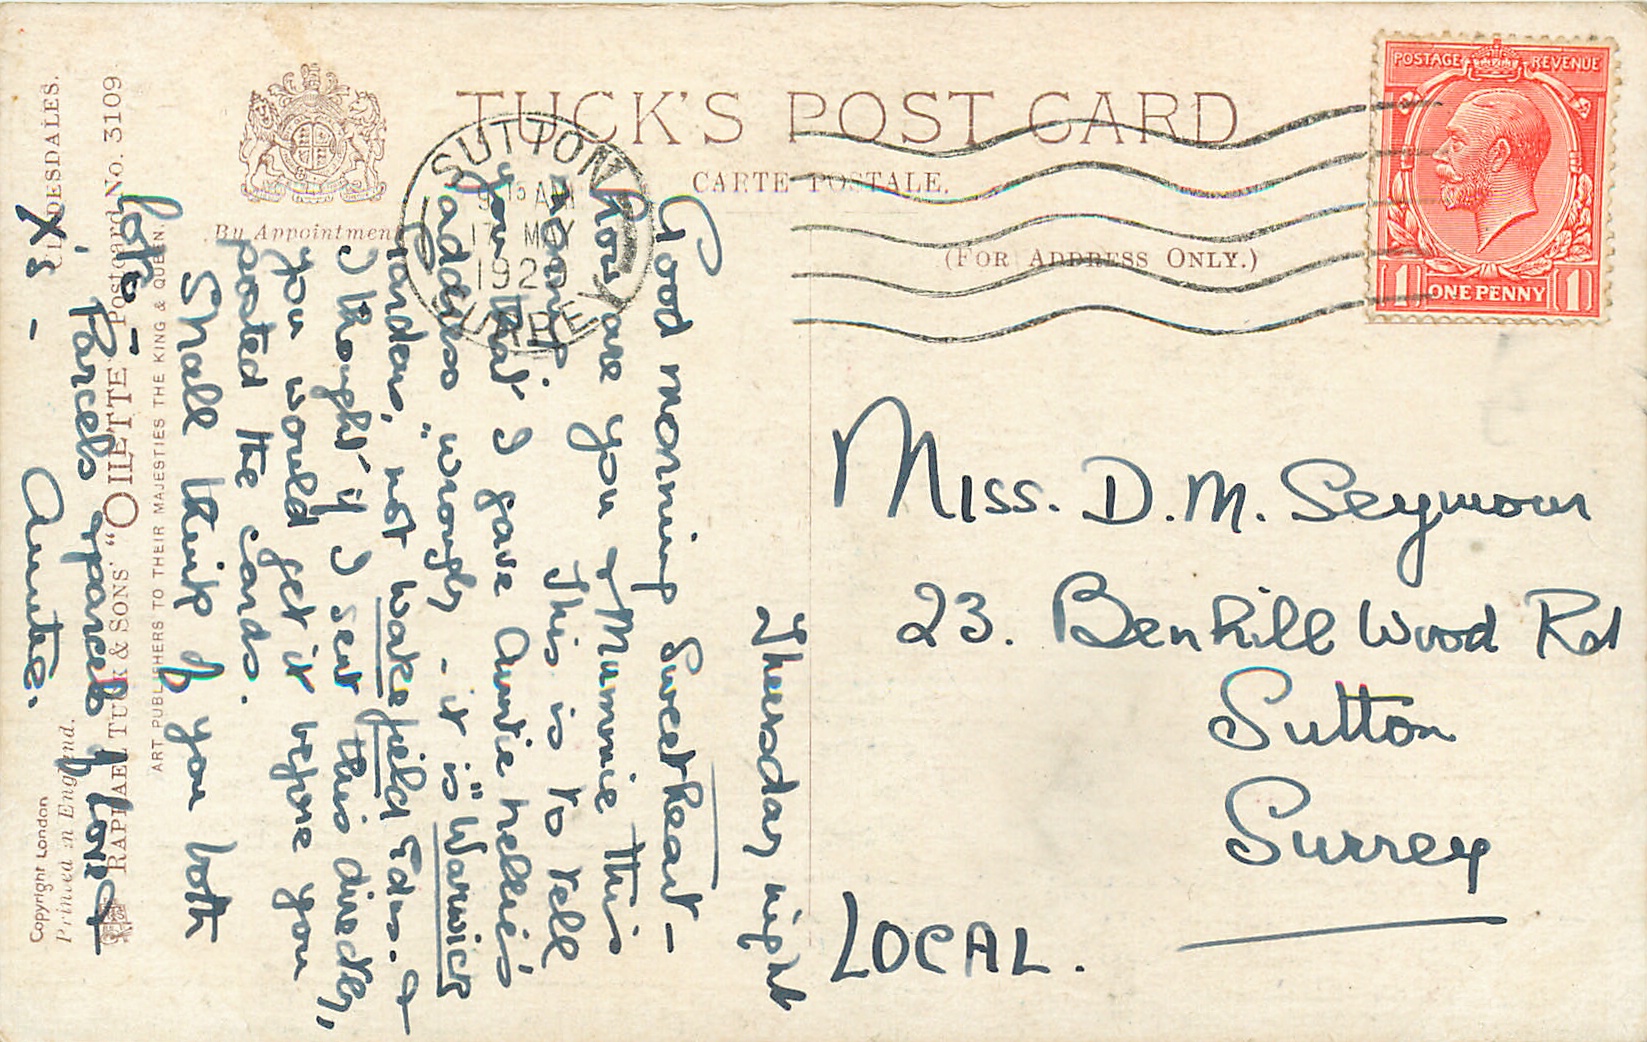 TUCK'S POST CARD
CARTE POSTALE.
(FOR ADDRESS ONLY.)
By Appointment
POSTAGE REVENUE
1 ONE PENNY 1
SUTTON
9 15 AM
17 MY
192
SURREY
Miss. D. M. Seymour
23. Benhill Wood Rd
Sutton
Surrey
LOCAL.
Thursday night
Good morning Sweetheart –
How are you & Mummie this
This is to tell
you that I gave Auntie Nellie's
address "wrongly – it is "Warwick
Gardens, not Wakefield Gdns. &
I thought if I sent this directly,
you would get it before you
posted the cards.
Shall think of you both
Parcels & parcels of love &
X's –
Auntie.
CLYDESDALES.
Postcard No. 3109
RAPHAEL TUCK & SONS' "OILETTE"
ART PUBLISHERS TO THEIR MAJESTIES THE KING & QUEEN.
Copyright London
Printed in England.